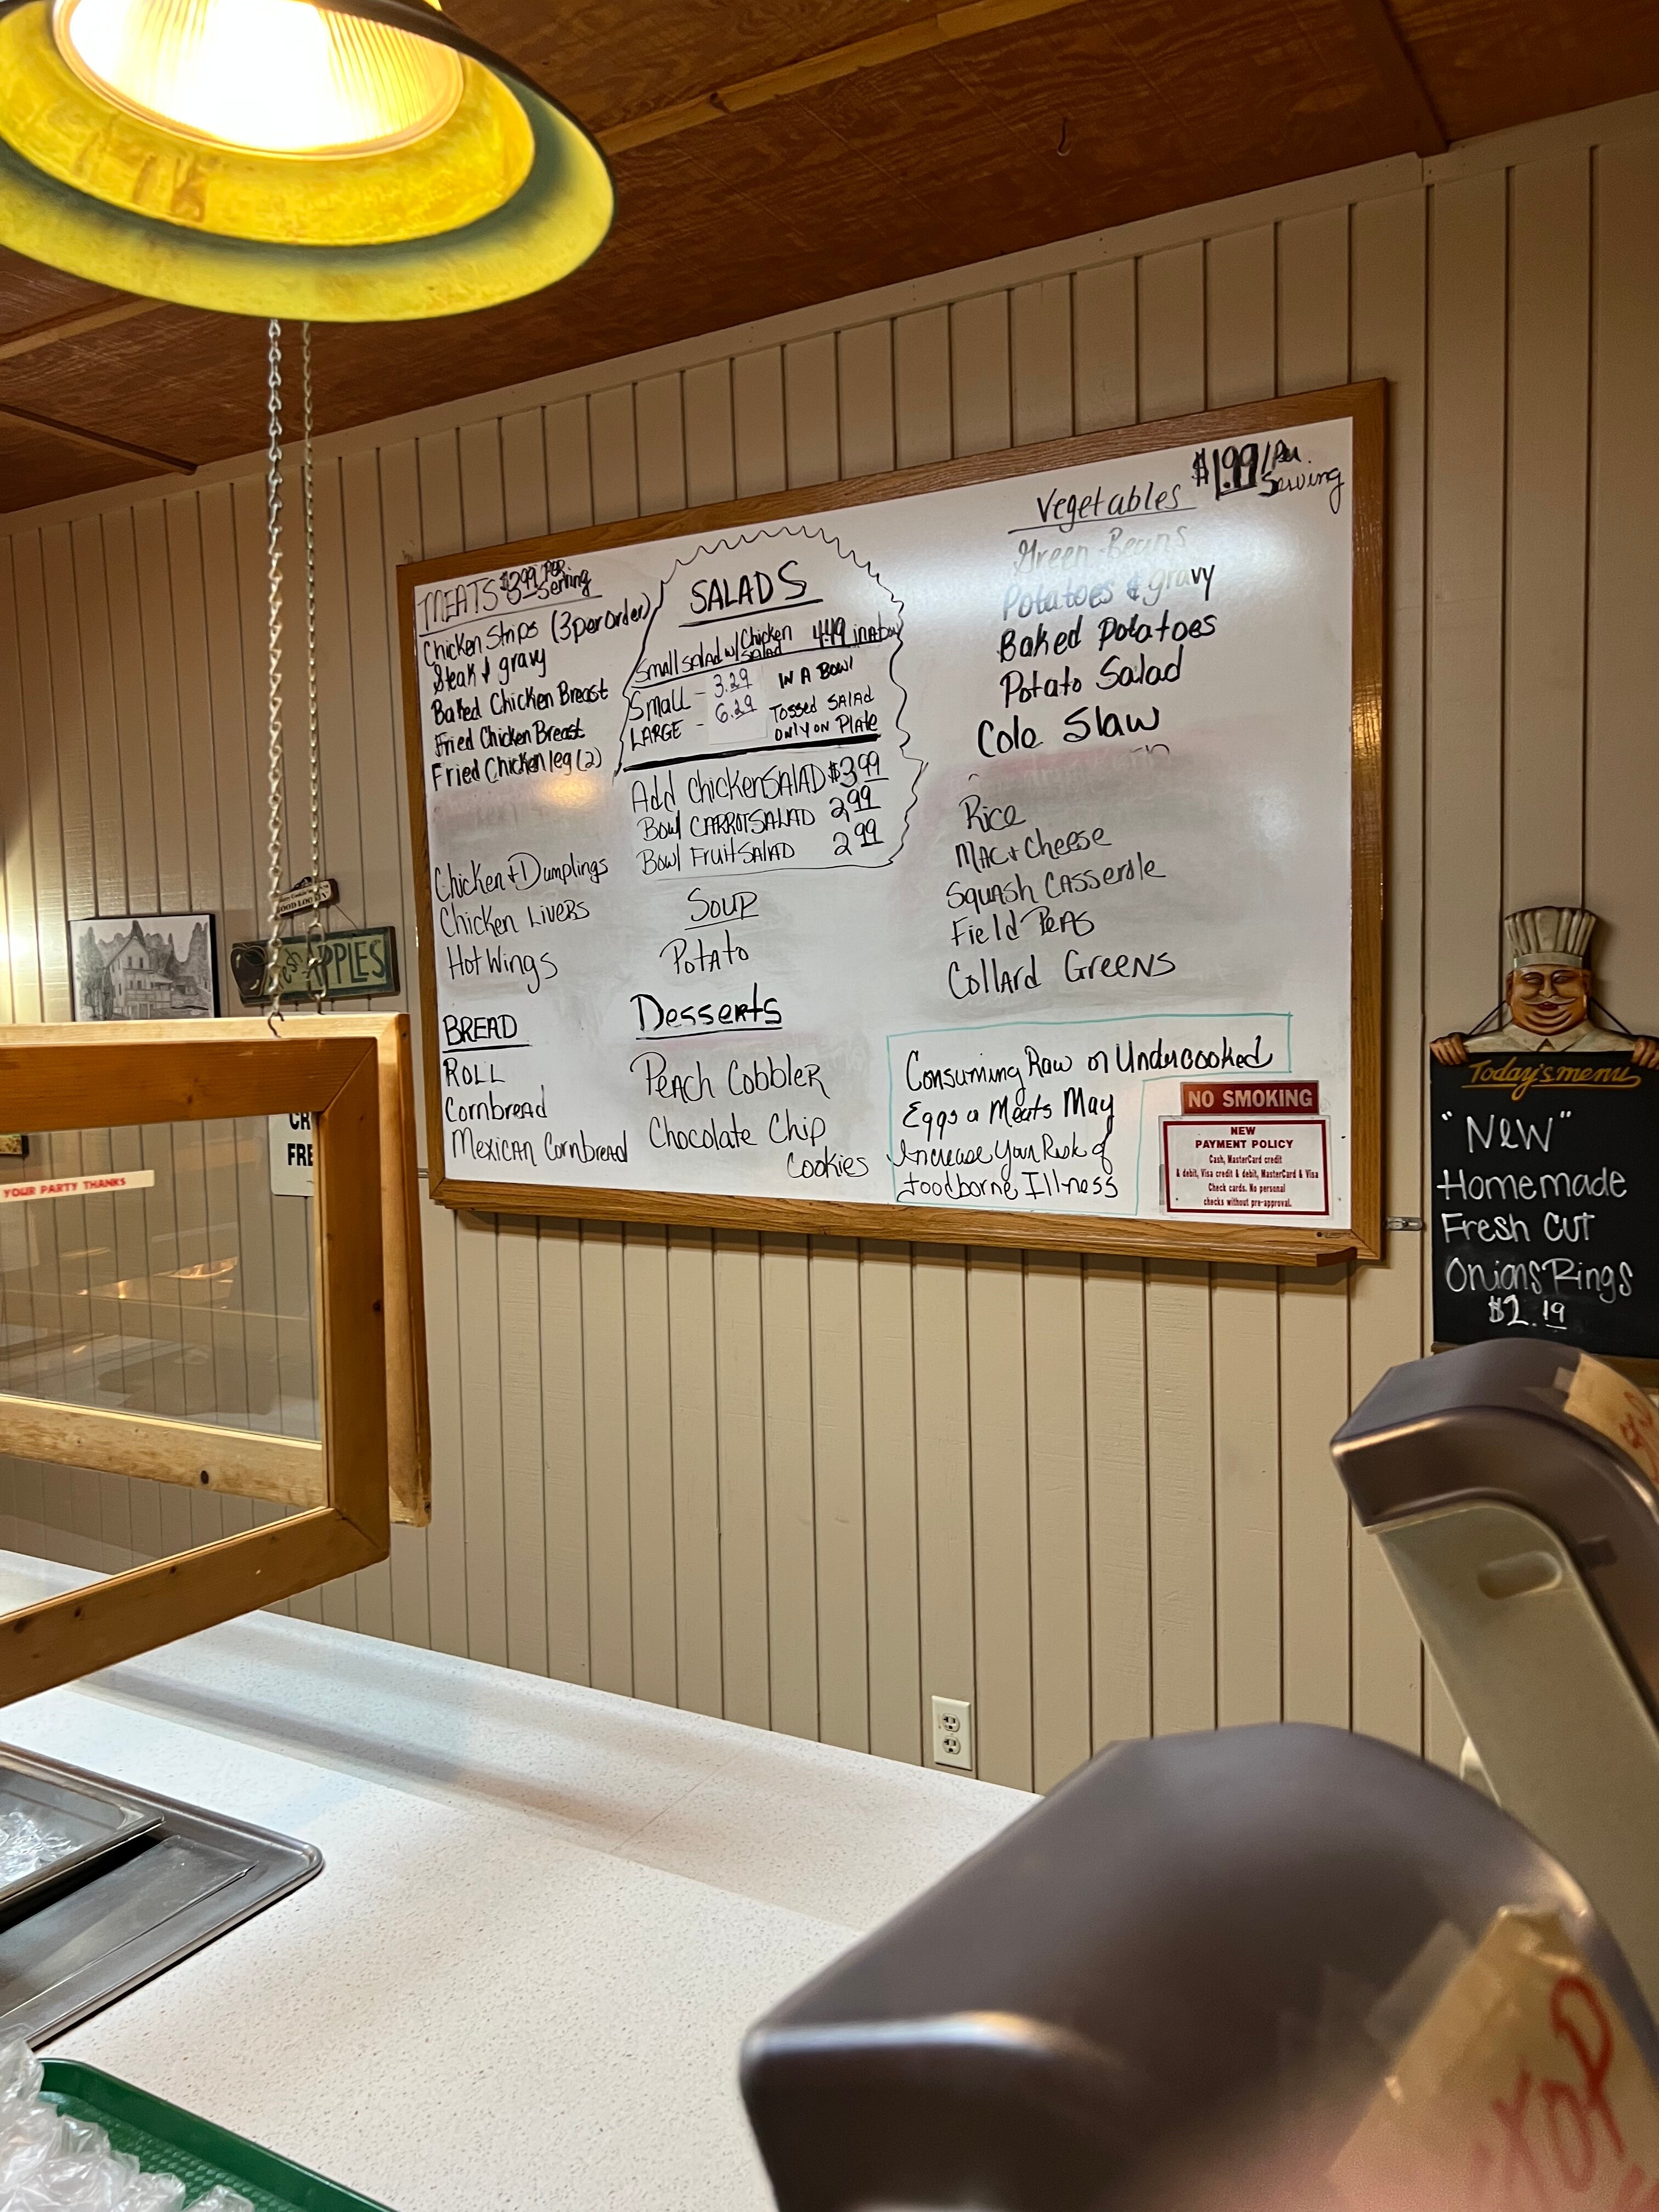 MEATS $3.99 PER Serving
Chicken Strips (3 per order)
Steak & gravy
Baked Chicken Breast
Fried Chicken Breast
Fried Chicken leg (2)
Chicken + Dumplings
Chicken Livers
Hot Wings
BREAD
ROLL
Cornbread
Mexican Cornbread
SALADS
Small Salad w/ Chicken Salad 4.49 in A bowl
Small - 3.29 IN A BOWl
LARGE - 6.29 Tossed SAlAd
Only on PlAte
Add ChickenSAlAD $3.99
Bowl CARROTSALAD 2.99
Bowl FruitSAlAD 2.99
Soup
PotAto
Desserts
PeAch CobbleR
Chocolate Chip
Cookies
Vegetables $1.99/Per Serving
Green Beans
Potatoes & gravy
Baked Potatoes
Potato Salad
Cole Slaw
Rice
MAC + Cheese
Squash Casserole
Field PeAs
Collard Greens
Consuming Raw or Undercooked
Eggs or Meats May
Increase Your Risk of
foodborne Illness
NO SMOKING
NEW
PAYMENT POLICY
Cash, MasterCard credit
& debit, Visa credit & debit, MasterCard & Visa
Check cards. No personal
checks without pre-approval.
Today's menu
"New"
Homemade
Fresh Cut
Onions Rings
$2.19
APPLES
YOUR PARTY THANKS
CR
FRE